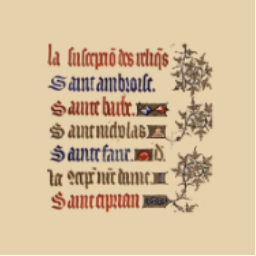 la suscepciō des reliq̄s
Saint ambroise.
Sainte barbe.
Saint nicholas
Sainte fare. d.
la 9cepc̄ n̄r̄e dame.
Saint ciprian